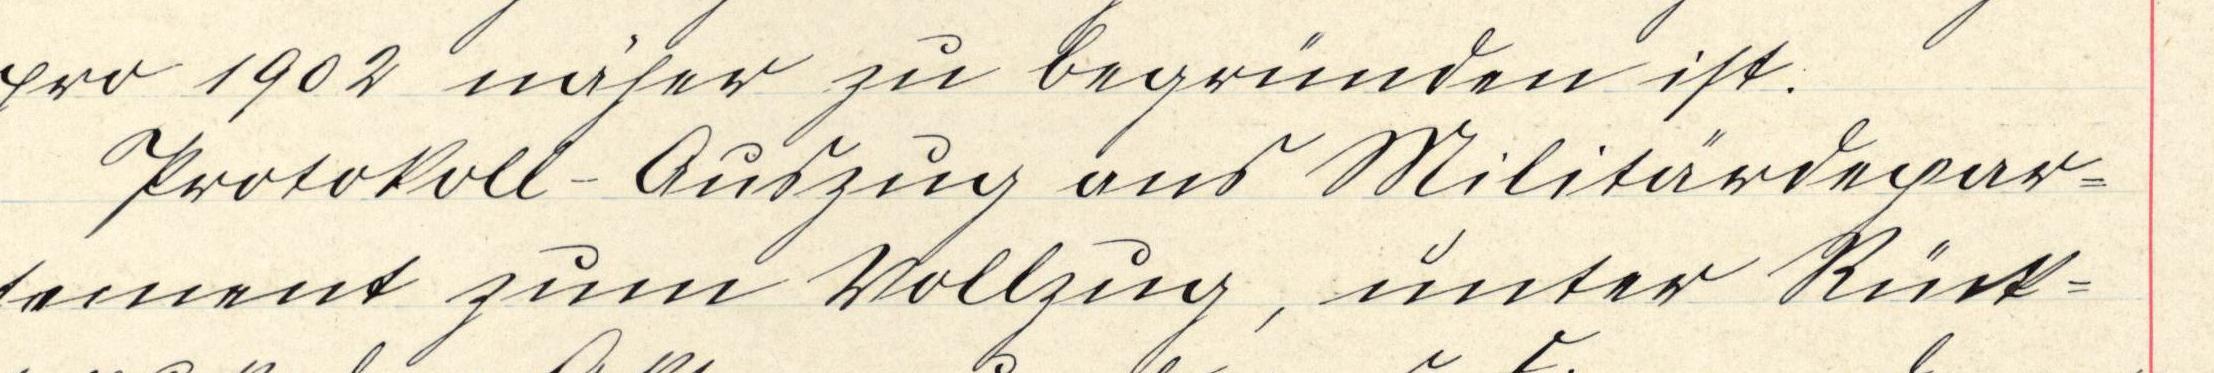 pro 1902 näher zu begründen ist.
Protokoll-Auszug ans Militärdepar=
tement zum Vollzug, unter Rück=